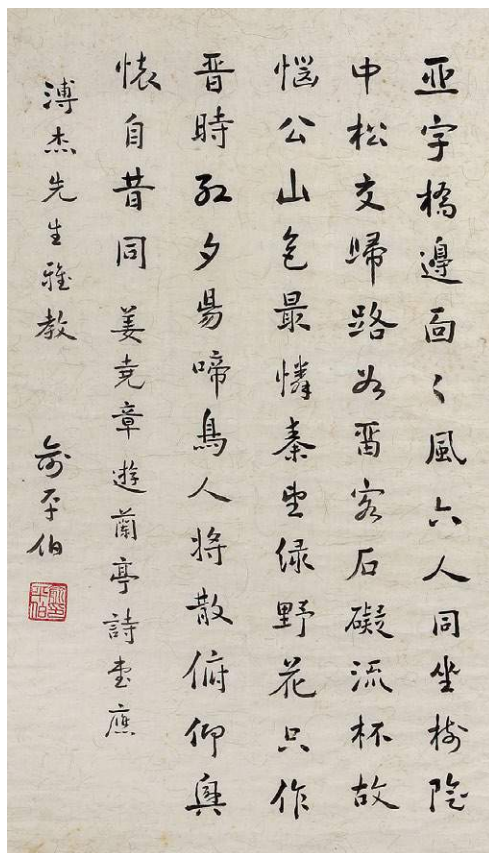 亞字橋邊面〻風六人同坐樹陰
中松交歸路如畱客石礙流杯故
惱公山色最憐秦望緑野花只作
晋時紅夕陽啼鳥人將散俯仰興
懷自昔同 姜堯章遊蘭亭詩書應
溥杰先生雅教 俞平伯